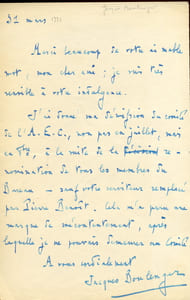 31 mars
Merci beaucoup de votre aimable
mot, mon cher ami ; je suis très
sensible à votre indulgence.
J'ai donné ma démission du comité
de l'A.E.C., non pas en juillet, mais
en à la suite de la re-
nomination de tous les membres du
Bureau — sauf votre serviteur remplacé
par Pierre Benoît. Cela m'a paru une
marque de mécontentement, après
laquelle je ne pouvais demeurer au Comité
A vous cordialement
Jacques Boulenger